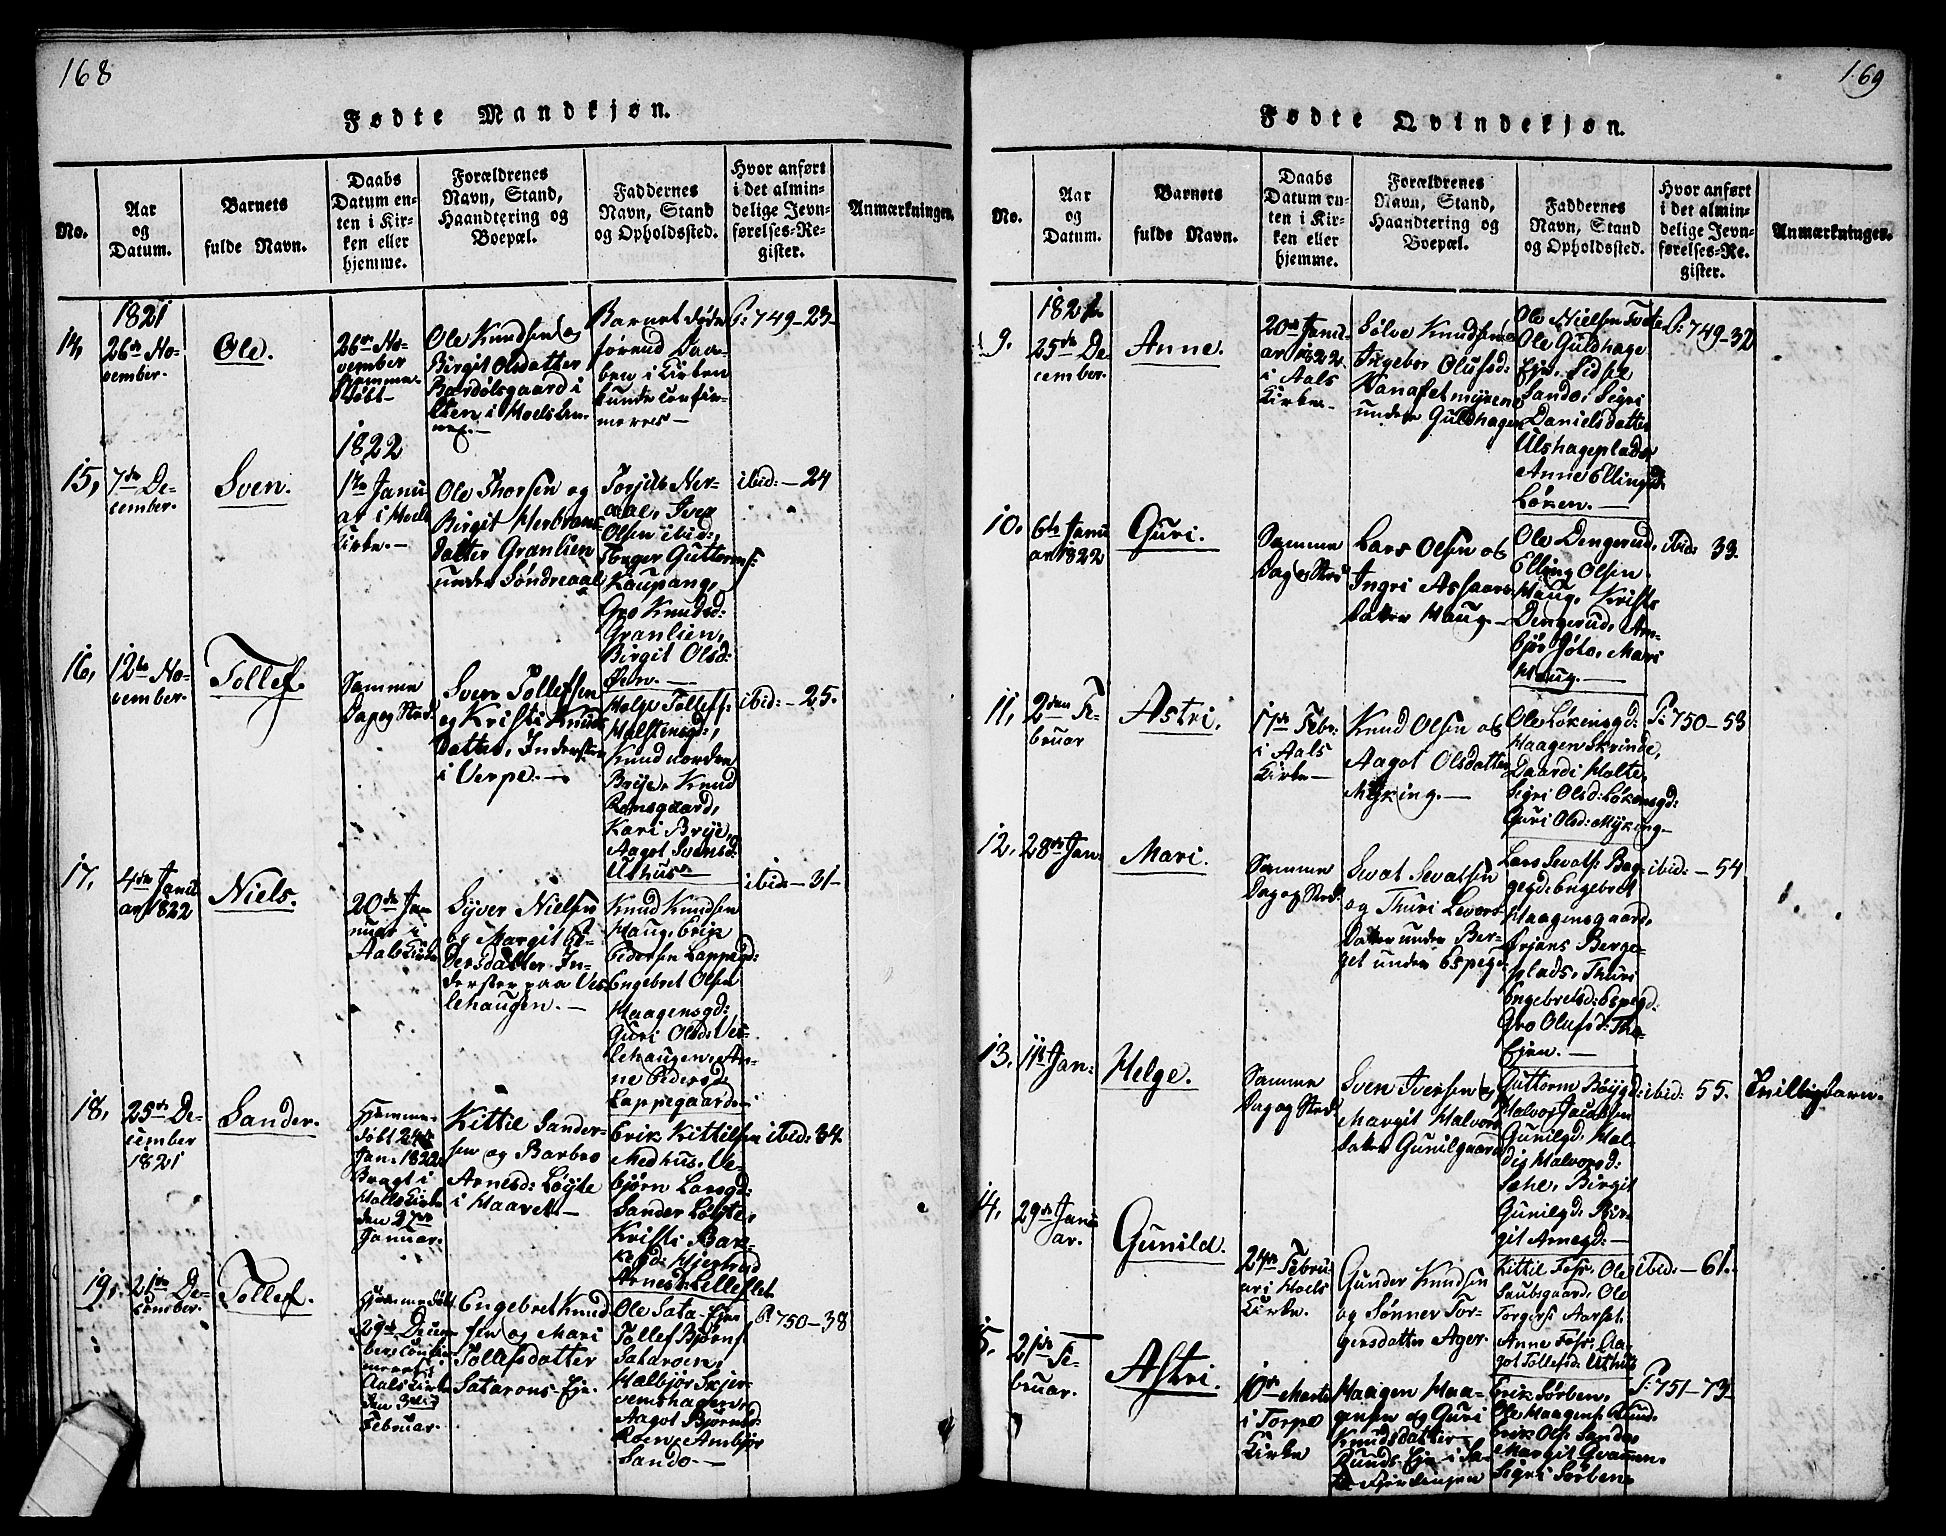 168
Fødte Mandkjøn.
No.
Aar
og
Datum.
Barnets
fulde Navn.
Daabs
Datum en-
ten i Kir-
ken eller
hjemme.
Forældrenes
Navn, Stand,
Haandtering og
Boepæl.
Faddernes
Navn, Stand
og Opholdssted.
Hvor anført
i det almin-
delige Jevn-
førelses-Re-
gister.
Anmærkninger.
14,
1821
26de No-
vember.
Ole.
26de No-
vember
hjemme-
døbt-
Ole Knudsen og
Birgit Olsdatter
Bardølsgaard i
i Hoels An-
nex.-
Barnet døde
førend Daa-
ben i Kirken
kunde confir-
meres-
P: 749-23-
15,
7de De-
cember.
Sven.
1822
1ste Janu
ar i Hoels
Kirke.-
Ole Thorsen og
Birgit Herbrans-
datter Granlien
under Søndreaal
Torjels Ner-
aal, Iver
Olsen ibid:,
Guttorms:
Kaupang,
Gro Knudsd:
Granlien,
Birgit Olsd:
Øen.-
ibid:-24
16,
12te No-
vember.
Tollef.
Samme
Dag og Sted
Sven Tollefsen
og Kristi Knuds
datter, Inderster
i Verpe.-
Helge Tollefs:
Halstensgd:,
Knud nordre
Brye, Knud
Ronsgaard,
Kari Brye,
Aagot Svensd:
Uthus-
ibid:-25.
17,
4de Janu
ar 1822
Niels.
20de Ja-
nuar i
Aals Kirke
Syver Nielsen
og Margit Pe-
dersdatter In-
derster paa Ves-
lehaugen.-
Knud Knudsen
Haug, Erik
Pedersen Lappegd:
Engebret Olsen
Haagensgd:
Guri Olsd: Ves-
lehaugen, An-
ne Pedersd:
Lappegaard-
ibid-31-
18,
25de De-
cember
1821
Sander.
Hjemme-
døbt 24de
Jan. 1822.
Bragt i
Hoels Kirke
den 27de
Januar.
Kittil Sander-
sen og Barbro
Arnesd: Løyte
i Haavet-
Erik Kittilsen
Medhus, Ve-
bjørn Larsgd:
Sander Løyte,
Kristi Bar-
kegd: Hjertrud
Arnesd: Lilleslet
ibid: 34.
19,
21de De-
cember.
Tollef.
Hjemmedøbt
29de Decem-
ber, confir-
meret i
Aals Kirke
den 3die
Februar.
Engebret Knud
sen og Mari
Tollefsdatter
Sataroens-Eje.
Ole Sata-Ejen
Tollef Bjørns:
Sataroen,
Halbjør Skjer-
vemshagen,
Aagot Bjørnsd:
Roen, Ambjør
Sando.-
P: 750-38
169
Fødte Qvindekjøn.
No.
Aar
og
Datum.
Barnets
fulde Navn.
Daabs
Datum en-
ten i Kir-
ken eller
hjemme.
Forældrenes
Navn, Stand,
Haandtering og
Boepæl.
Faddernes
Navn, Stand
og Opholdssted.
Hvor anført
i det almin-
delige Jevn-
førelses-Re-
gister.
Anmærkninger.
9.
1821
25de De-
cember.
Anne.
20de Janu-
ar 1822
i Aals
Kirke.-
Sølve Knudsen og
Ingebor Olufsd:
under Guldhagen
Ole Nielsen Tvete
Ole Guldhage
Eje, Sidsel
Sando, Sigri
Danielsdatter
Ulshageplads,
Anne Ellingsd:
Løken.-
P: 749-32
10.
6te Janu
ar 1822
Guri.
Samme
Dag og Sted
Lars Olsen og
Ingri Assars-
datter Haug-
Ole Dengerud,
Elling Olsen
Haug, Kristi
Dengerud, Am-
bjør Gøto, Mari
Haug.-
ibid: 33.
11,
2den Fe-
bruar
Astri.
17de Febr:
i Aals
Kirke-
Knud Olsen og
Aagot Olsdatter
Myking.-
Ole Løkensgd:
Haagen Skrinde,
Daardi Holte,
Sigri Olsd: Løkensgd:
Guri Olsd: Myking-
P: 750-53
12.
28de Jan:
Mari.
Samme
Dag og Sted
Sevat Sevatsen
og Thuri Levors
datter under Ber-
get under Espege
Lars Sevats: Bag-
gegd: Engebret
Haagensgaard,
Ørjans Berge-
plads, Thuri
Engebretsd: Espegd:
Gro Olufsd:
Ejen.-
ibid:-54
13.
11te Jan:
Helge.
Samme
Dag og Sted
Sven Iversen og
Margit Halvors
datter Gunilgaard
Guttorm Bøygd:
Halvor Jacobsen
Gunilgd, Hal-
dis Halvorsd:
Sehl, Birgit
Gunilgd, Bir-
git Arnegd:-
ibid: 55.
Tvillingbarn.
14.
29de Janu
ar.
Gunild.
24de Febru
ar i Hoels
Kirke.
Gunder Knudsen
og Sønner Tor-
gersdatter Ager.
Kittil Tofs:, Ole
Saubsgaard, Ole
Torgers: Aarset,
Anne Tofs:, Aa-
got Tollefsd: Uthus
ibid:-61.
15.
21de Fe-
bruar.
Astri.
10de Marts
i Torpe
Kirke
Haagen Haa-
gensen og Guri
Knudsdatter
Runds-Eje i
Erik Sørben,
Ole Haagens: Rund,
Erik Ols: Sando
Margit Gvammen,
Sigri Sørben.
P: 751-73